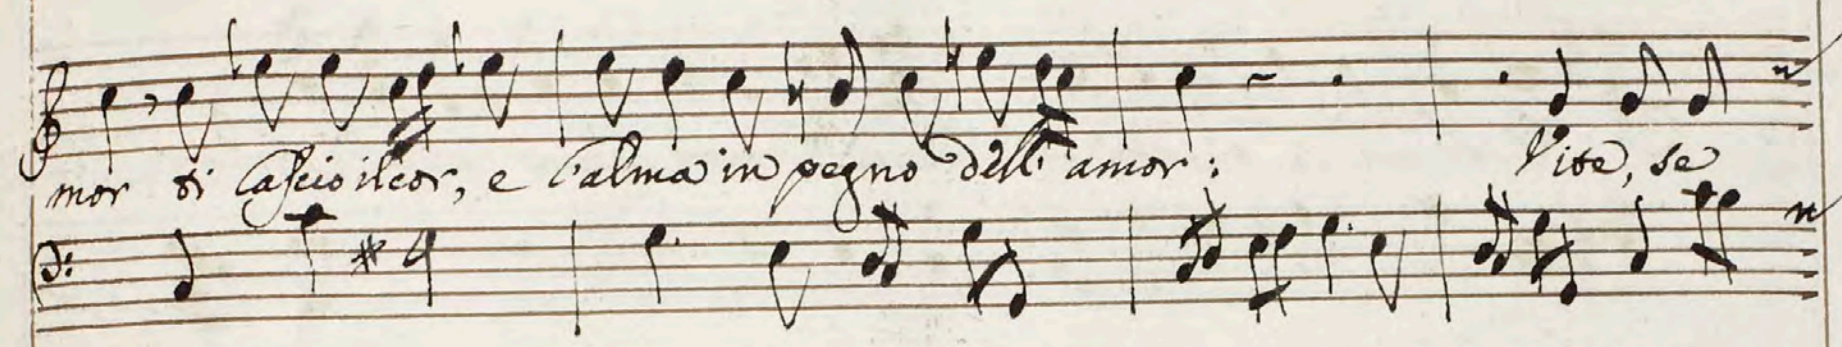 mor ti lascio il cor, e l'alma in pegno dell' amor: Vite, se